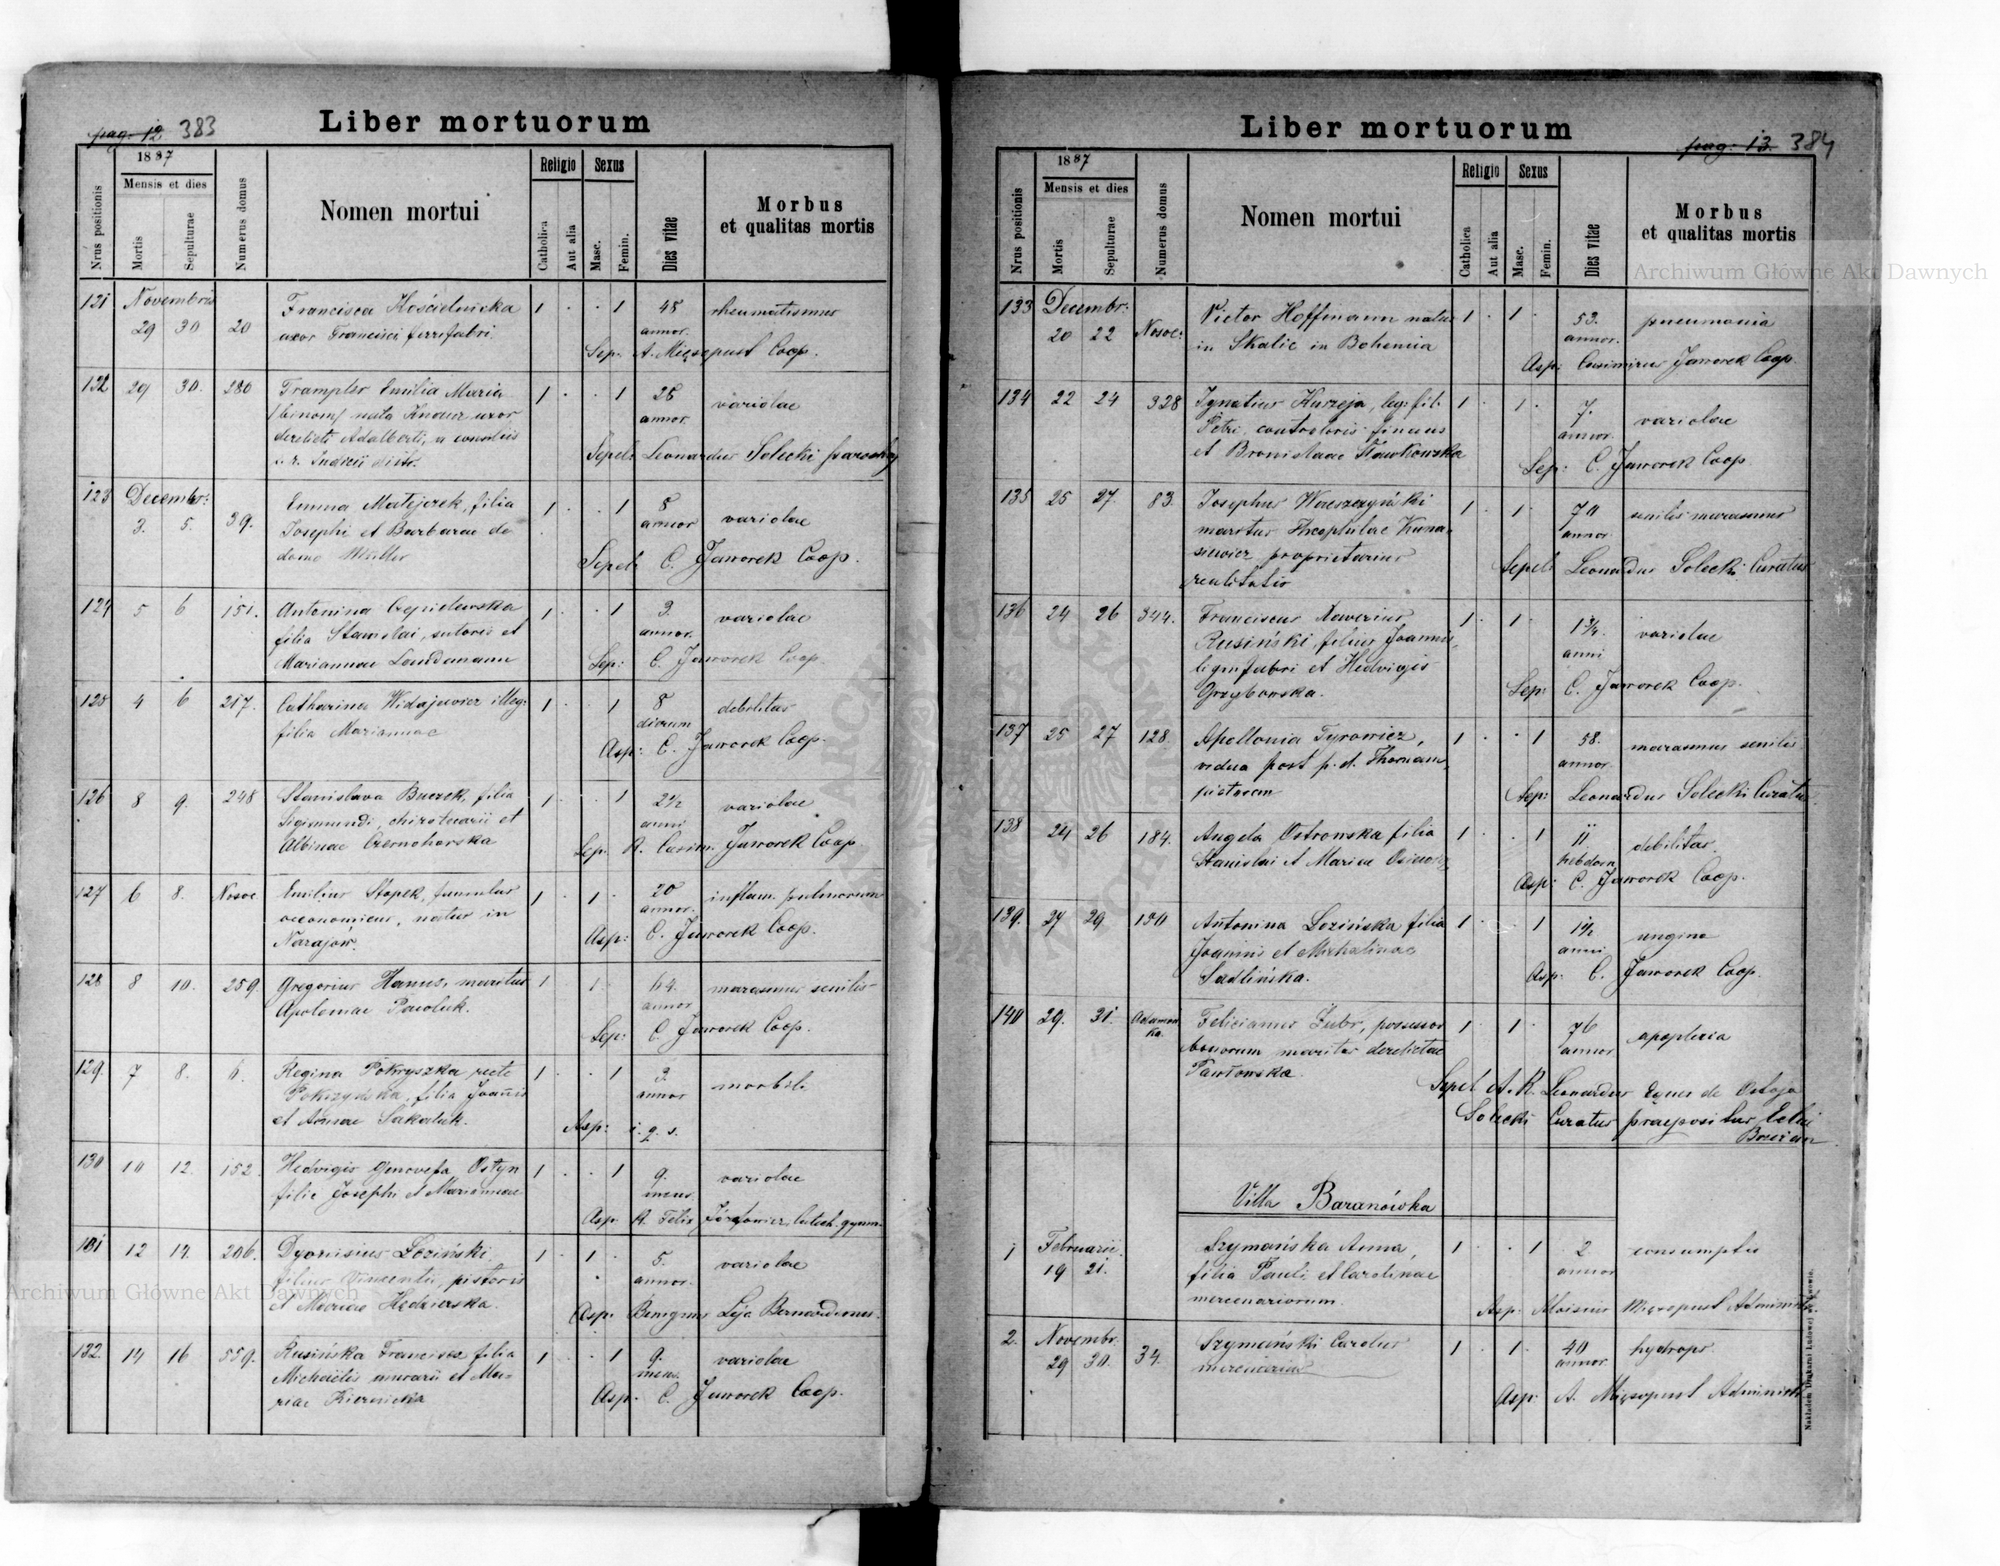 Liber mortuorum
pag. 12. 383
Nrus positionis
1887
Mensis et dies
Mortis
Sepulturae
Numerus domus
Nomen mortui
Religio
Catholica
Aut alia
Sexus
Masc.
Femin.
Dies vitae
Morbus
et qualitas mortis
121 Novembris Francisca Kościelnicka 1 . . 1 45 rheumatismus
29 30 20 uxor Francisci ferrifabri. annor.
Sep. A. Mięsopust Coop.
122 29 30. 280 Trampler Emilia Maria 1 . . 1 28 variolae
/binom/ nata Knaur uxor annor.
derelicti Adalberti, a consiliis
Sepel: Leonardus Solecki parochus
c. r. Iudicii distr.
123 Decembr: Emma Matejczek, filia 1 . . 1 8 variolae
3. 5. 39. Josephi et Barbarae de annor
domo Müller
Sepel: C. Jaworek Coop.
124 5 6 151. Antonina 1 . . 1 3. variolae
filia Stanislai, sutoris et annor.
Mariannae Landemann
Sep: C. Jaworek Coop.
125 4 6 217. Catharina Widajewicz illeg: 1 . . 1 8 debilitas
filia Mariannae dierum
Asp: C. Jaworek Coop.
126 8 9. 248 Stanislava Buczek, filia 1 . . 1 2½ variolae
Sigismundi, chirotecarii et anni
Albinae Czernohorska
Sep. R. Casim. Jaworek Coop
127 6 8. Nosoc. Emilius Stopek, famulus 1 . 1 . 20 inflam. pulmorum
oeconomicus, natus in annor.
Narajów.
Asp: C. Jaworek Coop.
128 8 10. 259 Gregorius Hanus, maritus 1 . 1 . 64. marasmus senilis
Apoloniae Pawluk. annor
Sep: C. Jaworek Coop.
129. 7 8. 6. Regina Pokryszka recte 1 . . 1 3. morbili
filia Joannis annor
et Annae Sakaluk.
Asp: i. q. s.
130 10 12. 152. Hedvigis Genovefa Ostyn 1 . . 1 9. variolae
filia Josephi et Mariannae mens.
Asp R. Felix Józefowicz catech. gymn.
131 12 14. 206. Dyonisius Łoziński, 1 . 1 . 5. variolae
filius Vincentii, pistoris annor.
et Mariae
Asp: Benignus Leja Bernardinus.
132. 14 16 559. Rusińska Francisca filia 1 . . 1 9. variolae
Michaelis murarii et Ma- mens.
riae Kiernicka
Asp. C. Jaworek Coop.
Liber mortuorum
pag. 13. 384
Nrus positionis
1887
Mensis et dies
Mortis
Sepulturae
Numerus domus
Nomen mortui
Religio
Catholica
Aut alia
Sexus
Masc.
Femin.
Dies vitae
Morbus
et qualitas mortis
133 Decembr: Victor Hoffmann natus 1 . 1 . 53. pneumonia
20 22 Nosoc: in Skalic in Bohemia annor.
Asp: Casimirus Jaworek Coop.
134 22 24 328 Ignatius Kurzeja, leg: fil. 1 . 1 . 7. variolae
Petri, controloris finans annor.
et Bronislaae Sławkowska
Sep: C. Jaworek Coop.
135 25 27. 83. Josephus 1 . 1 . 70 senilis marasmus
maritus Theophilae Kuna- annor
siewicz proprietarius
realitatis
Sepel: Leonardus Solecki Curatus
136 24 26 344. Franciscus Xaverius 1 . 1 . 1¾ variolae
Rusiński, filius Joannis, anni
lignifabri et Hedvigis
Grzybowska.
Sep: C. Jaworek Coop.
137 25 27 128. Apollonia Tyrowicz, 1 . . 1 58. marasmus senilis
vidua post p. d. Thomam, annor.
pictorem
Sep: Leonardus Solecki Curatus
138 24 26 184. Angela Ostrowska filia 1 . . 1 11 debilitas.
Stanislai et Mariae hebdom
Asp: C. Jaworek Coop.
139. 27 29 130 Antonina Łozińska filia 1 . . 1 1½ angina
Joannis et Michalinae anni
Sadlińska.
Asp: C. Jaworek Coop.
140 29. 31. Adamow-ka. Felicianus Żubr, possessor 1 . 1 . 76 apoplexia
bonorum maritus derelictae annor
Pawłowska.
Sepel A. R. Leonardus Eques de Ostoja
Solecki Curatus praepositus Eccl:
Brzeżan
Villa Baranówka
1 Februarii Szymańska Anna, 1 . . 1 2 consumptio
19 21. filia Pauli et Carolinae annor
mercenariorum.
Asp: Aloisius Mięsopust Administ.
2. Novembr. 34. Szymański Carolus 1 . 1 . 40 hydrops
29 30. mercenarius annor.
Asp: A. Mięsopust Administ.
Nakładem Drukarni Ludowej we Lwowie.
Archiwum Główne Akt Dawnych
Archiwum Główne Akt Dawnych